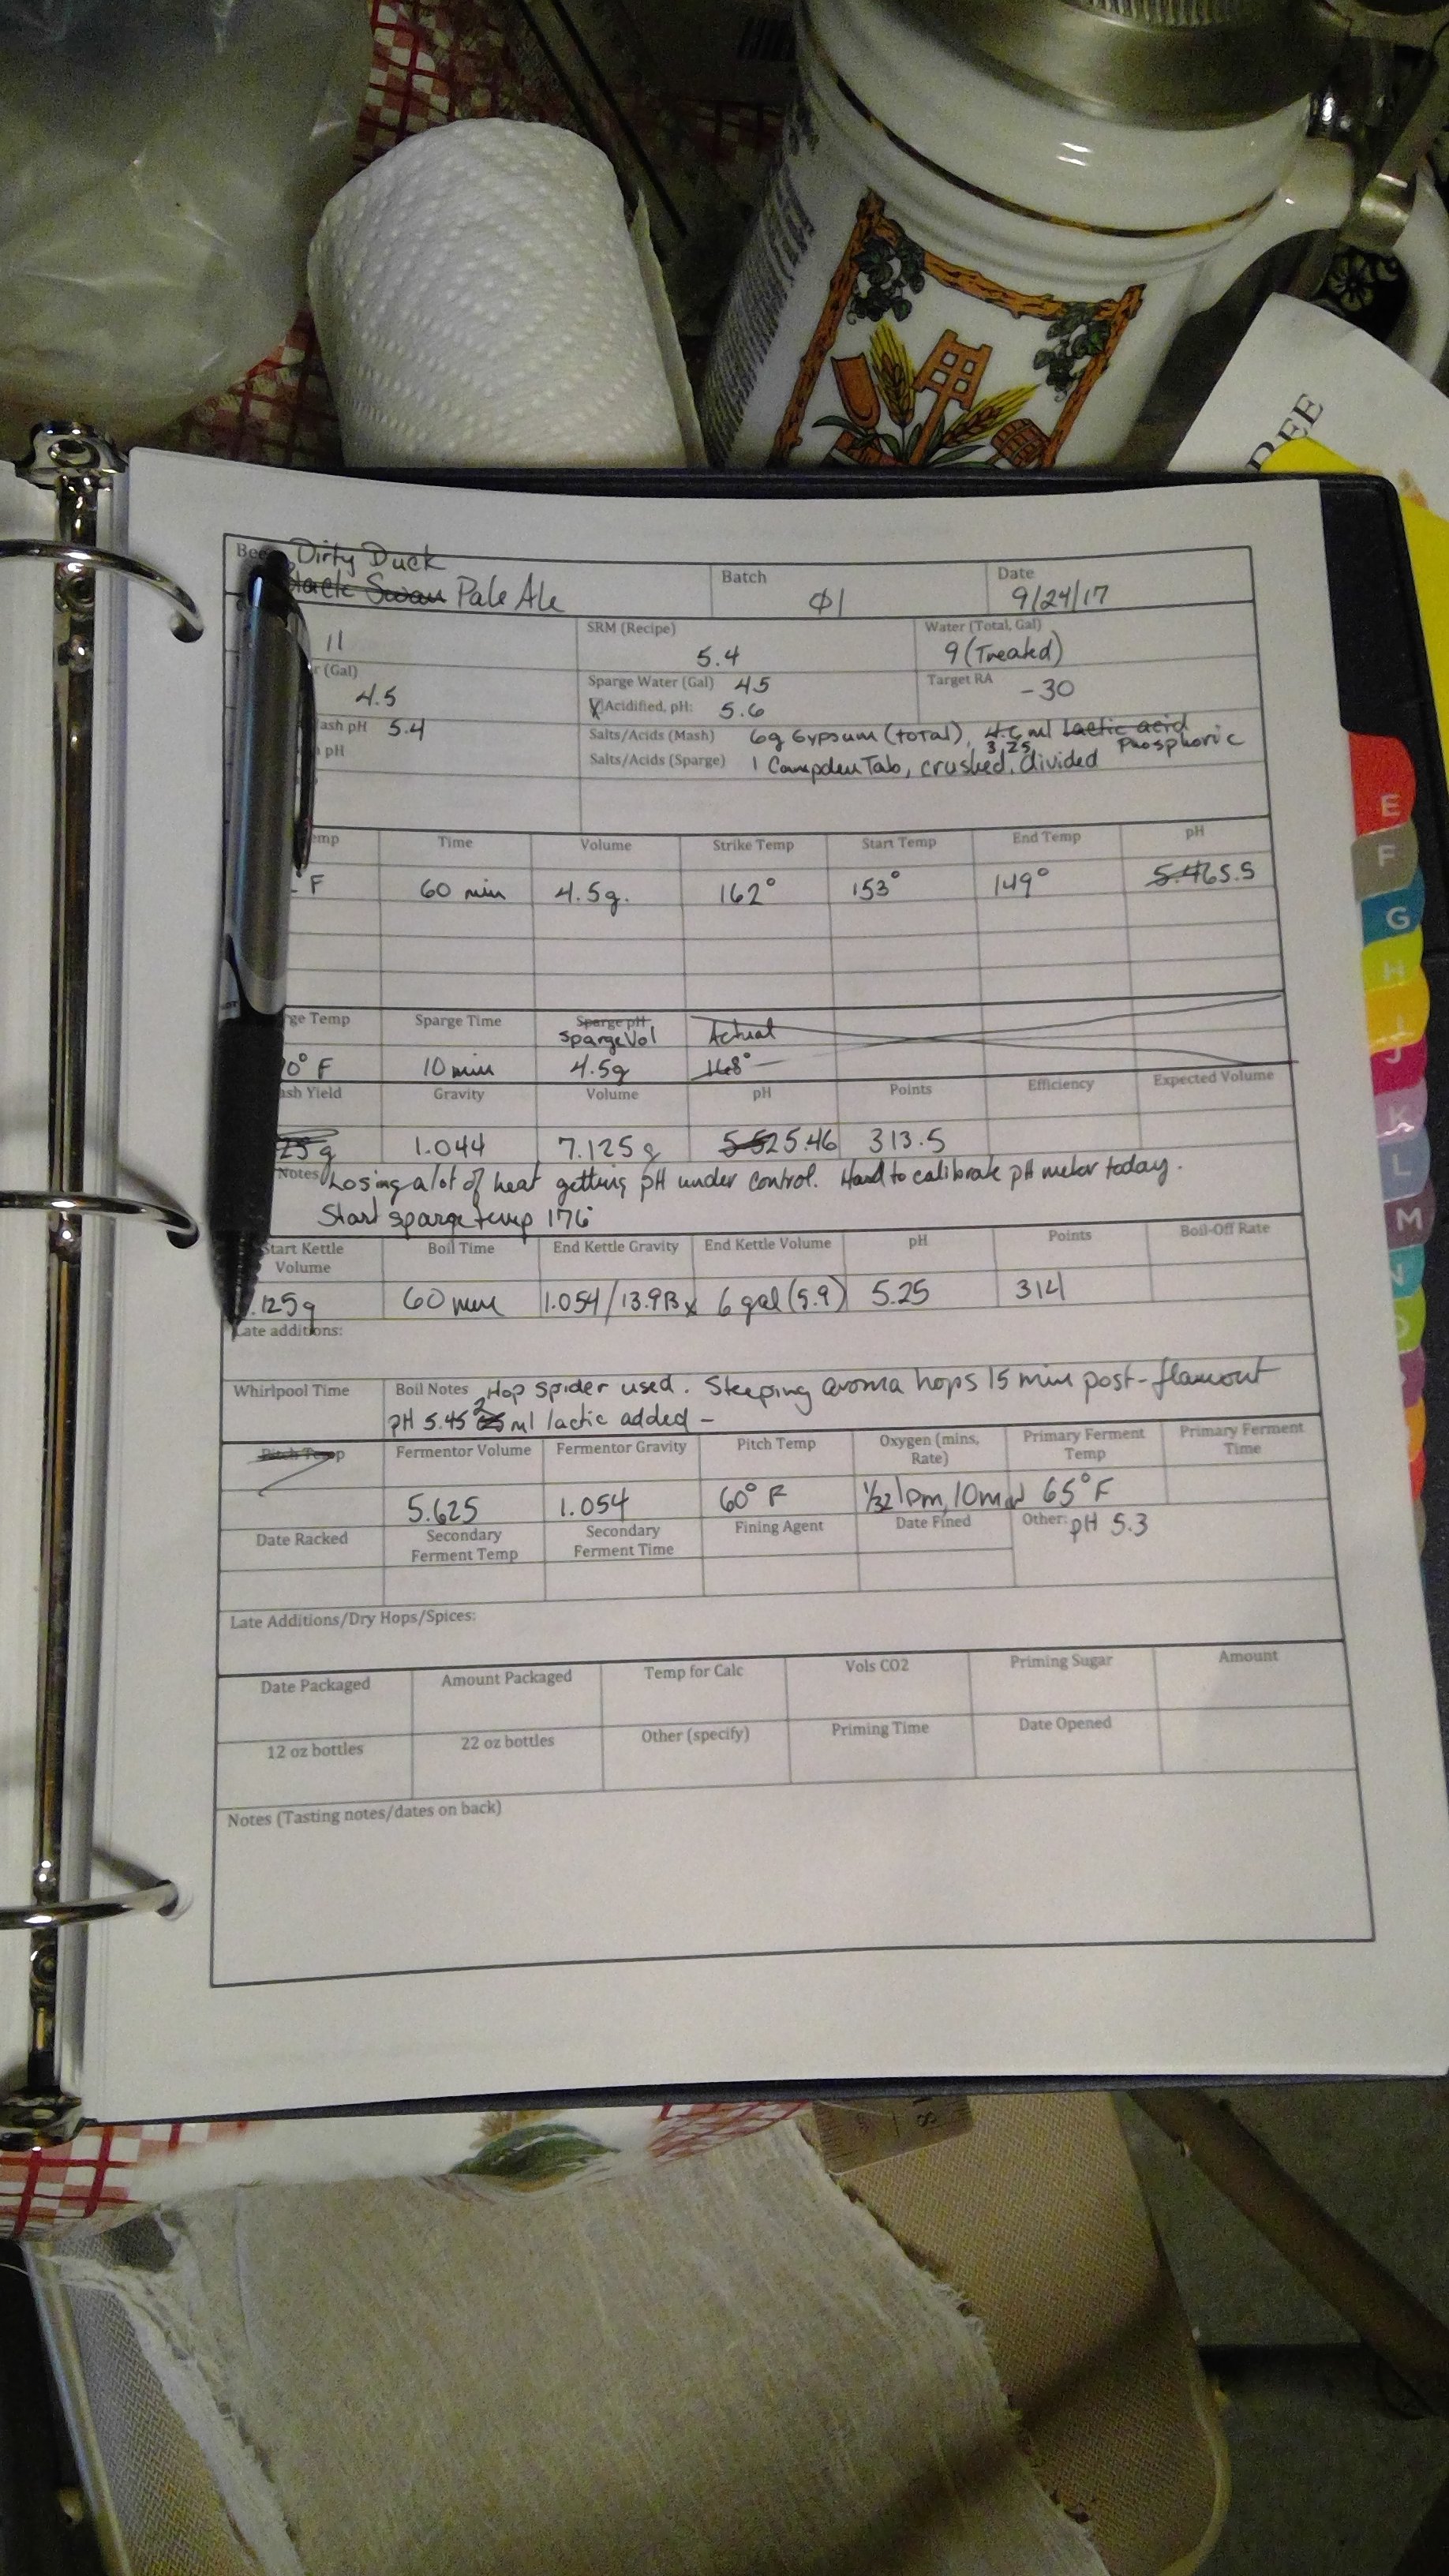 Dirty Duck
Swan Pale Ale
Batch
Ø1
Date
9/24/17
11
SRM (Recipe)
5.4
Water (Total, Gal)
9 (Treated)
(Gal)
4.5
Sparge Water (Gal) 4.5
Acidified, pH: 5.6
Target RA
-30
ash pH 5.4
pH
Salts/Acids (Mash) 6g Gypsum (total), 4.6 ml Lactic acid
3.25 Phosphoric
Salts/Acids (Sparge) 1 Campden Tab, crushed, divided
emp
Time
Volume
Strike Temp
Start Temp
End Temp
pH
° F
60 min
4.5g.
162°
153°
149°
5.46 5.5
ge Temp
Sparge Time
Sparge pH
Sparge Vol
Actual
0° F
10 min
4.5g
168°
ash Yield
Gravity
Volume
pH
Points
Efficiency
Expected Volume
25 g
1.044
7.125 g
5.52 5.46
313.5
Notes Losing a lot of heat getting pH under control. Hard to calibrate pH meter today.
Start sparge temp 176°
Start Kettle Volume
Boil Time
End Kettle Gravity
End Kettle Volume
pH
Points
Boil-Off Rate
.125g
60 min
1.054/13.9Bx
6 gal (5.9)
5.25
314
Late additions:
Whirlpool Time
Boil Notes Hop spider used. Steeping aroma hops 15 min post-flameout
pH 5.45 2 ml lactic added -
Pitch Temp
Fermentor Volume
Fermentor Gravity
Pitch Temp
Oxygen (mins, Rate)
Primary Ferment Temp
Primary Ferment Time
5.625
1.054
60° F
1/32 lpm, 10min
65° F
Date Racked
Secondary Ferment Temp
Secondary Ferment Time
Fining Agent
Date Fined
Other: pH 5.3
Late Additions/Dry Hops/Spices:
Date Packaged
Amount Packaged
Temp for Calc
Vols CO2
Priming Sugar
Amount
12 oz bottles
22 oz bottles
Other (specify)
Priming Time
Date Opened
Notes (Tasting notes/dates on back)
E
F
G
H
I
J
K
L
M
N
O